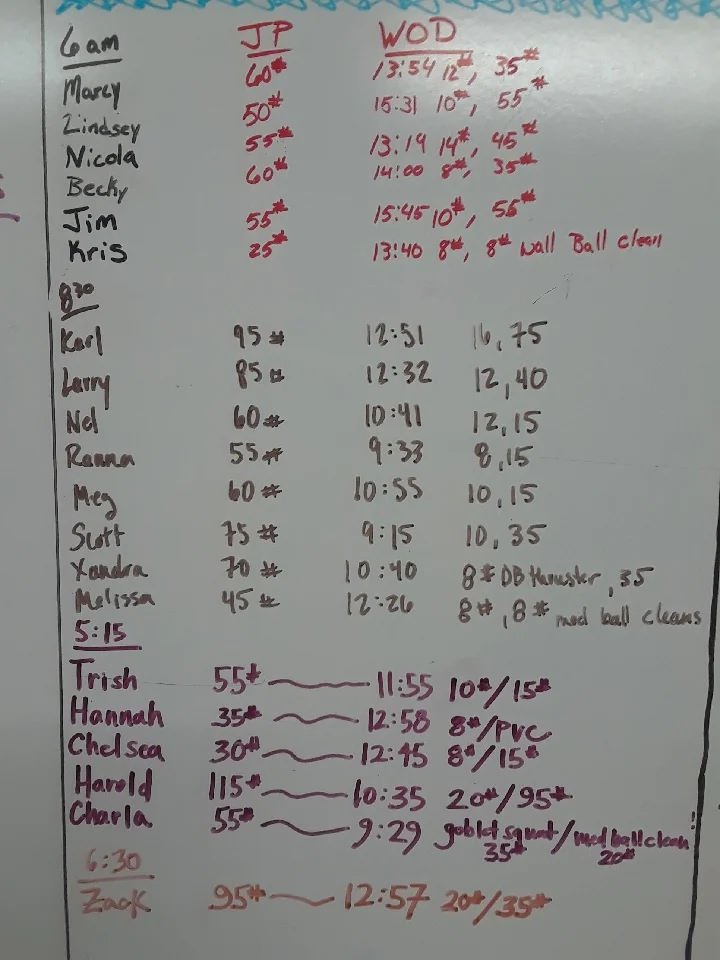 6am JP WOD
Marcy 60# 13:54 12#, 35#
Lindsey 50# 15:31 10#, 55#
Nicola 55# 13:19 14#, 45#
Becky 60# 14:00 8#, 35#
Jim 55# 15:45 10#, 55#
Kris 25# 13:40 8#, 8# Wall Ball Clean
8:30
Karl 95# 12:51 16, 75
Larry 85# 12:32 12, 40
Nel 60# 10:41 12, 15
Ranna 55# 9:33 8, 15
Meg 60# 10:55 10, 15
Scott 75# 9:15 10, 35
Xandra 70# 10:40 8# DB thruster, 35
Melissa 45# 12:26 8#, 8# med ball cleans
5:15
Trish 55# 11:55 10#/15#
Hannah 35# 12:58 8#/PVC
Chelsea 30# 12:45 8#/15#
Harold 115# 10:35 20#/95#
Charla 55# 9:29 goblet squat/med ball clean!
35# 20#
6:30
Zack 95# 12:57 20#/35#